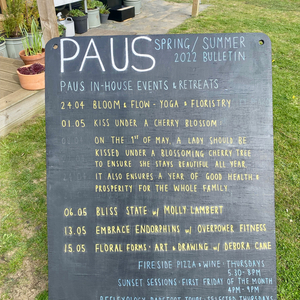 PAUS SPRING/SUMMER
2022 BULLETIN
PAUS IN-HOUSE EVENTS & RETREATS
24.04 BLOOM & FLOW - YOGA & FLORISTRY
01.05 KISS UNDER A CHERRY BLOSSOM
ON THE 1ST OF MAY, A LADY SHOULD BE
KISSED UNDER A BLOSSOMING CHERRY TREE
TO ENSURE SHE STAYS BEAUTIFUL ALL YEAR.
IT ALSO ENSURES A YEAR OF GOOD HEALTH &
PROSPERITY FOR THE WHOLE FAMILY.
06.05 BLISS STATE w/ MOLLY LAMBERT
13.05 EMBRACE ENDORPHINS w/ OVERPOWER FITNESS
15.05 FLORAL FORMS: ART & DRAWING w/ DEBORA CANE
FIRESIDE PIZZA & WINE · THURSDAYS
5.30-8PM
SUNSET SESSIONS · FIRST FRIDAY OF THE MONTH
4PM - 9PM
REFLEXOLOGY